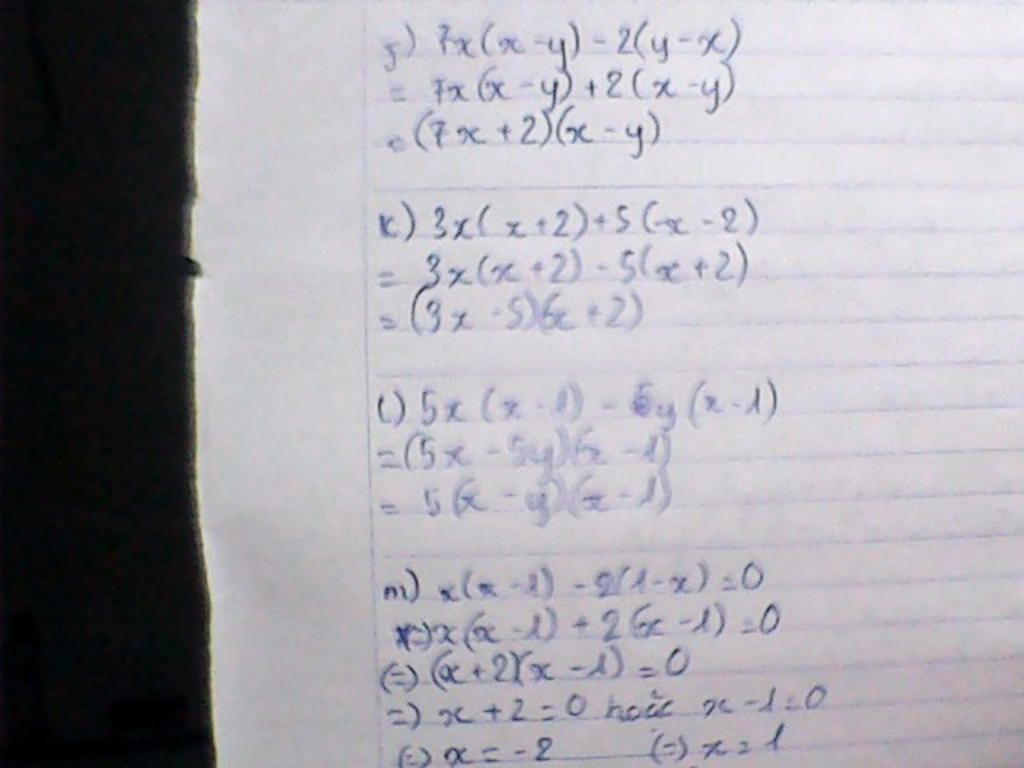 g) 7x(x-y) - 2(y-x)
= 7x(x-y) + 2(x-y)
= (7x+2)(x-y)
k) 3x(x+2)+5(-x-2)
= 3x(x+2) - 5(x+2)
= (3x-5)(x+2)
l) 5x(x-1) - 5y(x-1)
= (5x-5y)(x-1)
= 5(x-y)(x-1)
m) x(x-1) - 2(1-x) = 0
(=) x(x-1) + 2(x-1) = 0
(=) (x+2)(x-1) = 0
=) x+2=0 hoặc x-1=0
(=) x = -2 (=) x = 1